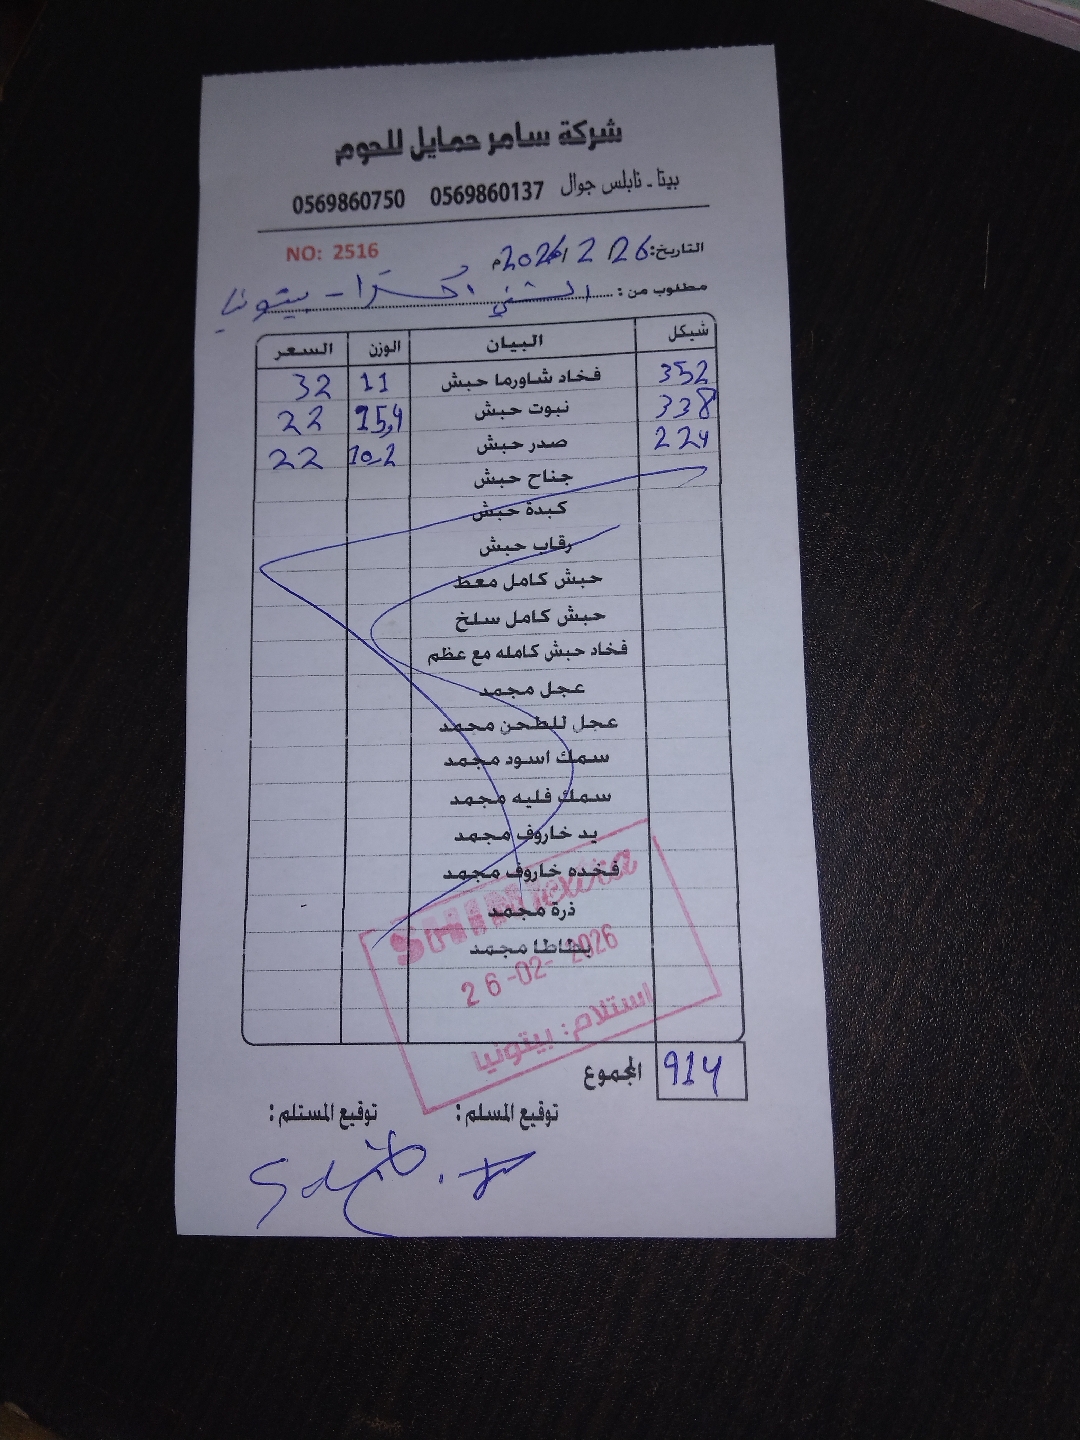 شركة سامر حمايل للحوم
بيتا - نابلس جوال 0569860137 0569860750
NO: 2516
التاريخ: 26 / 2 / 2026م
مطلوب من : الشني اكسترا - بيتونيا
شيكل البيان الوزن السعر
352 فخاد شاورما حبش 11 32
338 نبوت حبش 15,4 22
224 صدر حبش 10.2 22
جناح حبش
كبدة حبش
رقاب حبش
حبش كامل معط
حبش كامل سلخ
فخاد حبش كامله مع عظم
عجل مجمد
عجل للطحن مجمد
سمك اسود مجمد
سمك فليه مجمد
يد خاروف مجمد
فخده خاروف مجمد
ذرة مجمد
بطاطا مجمد
SHINIextra
26-02-2026
استلام: بيتونيا
المجموع 914
توقيع المسلم : توقيع المستلم :